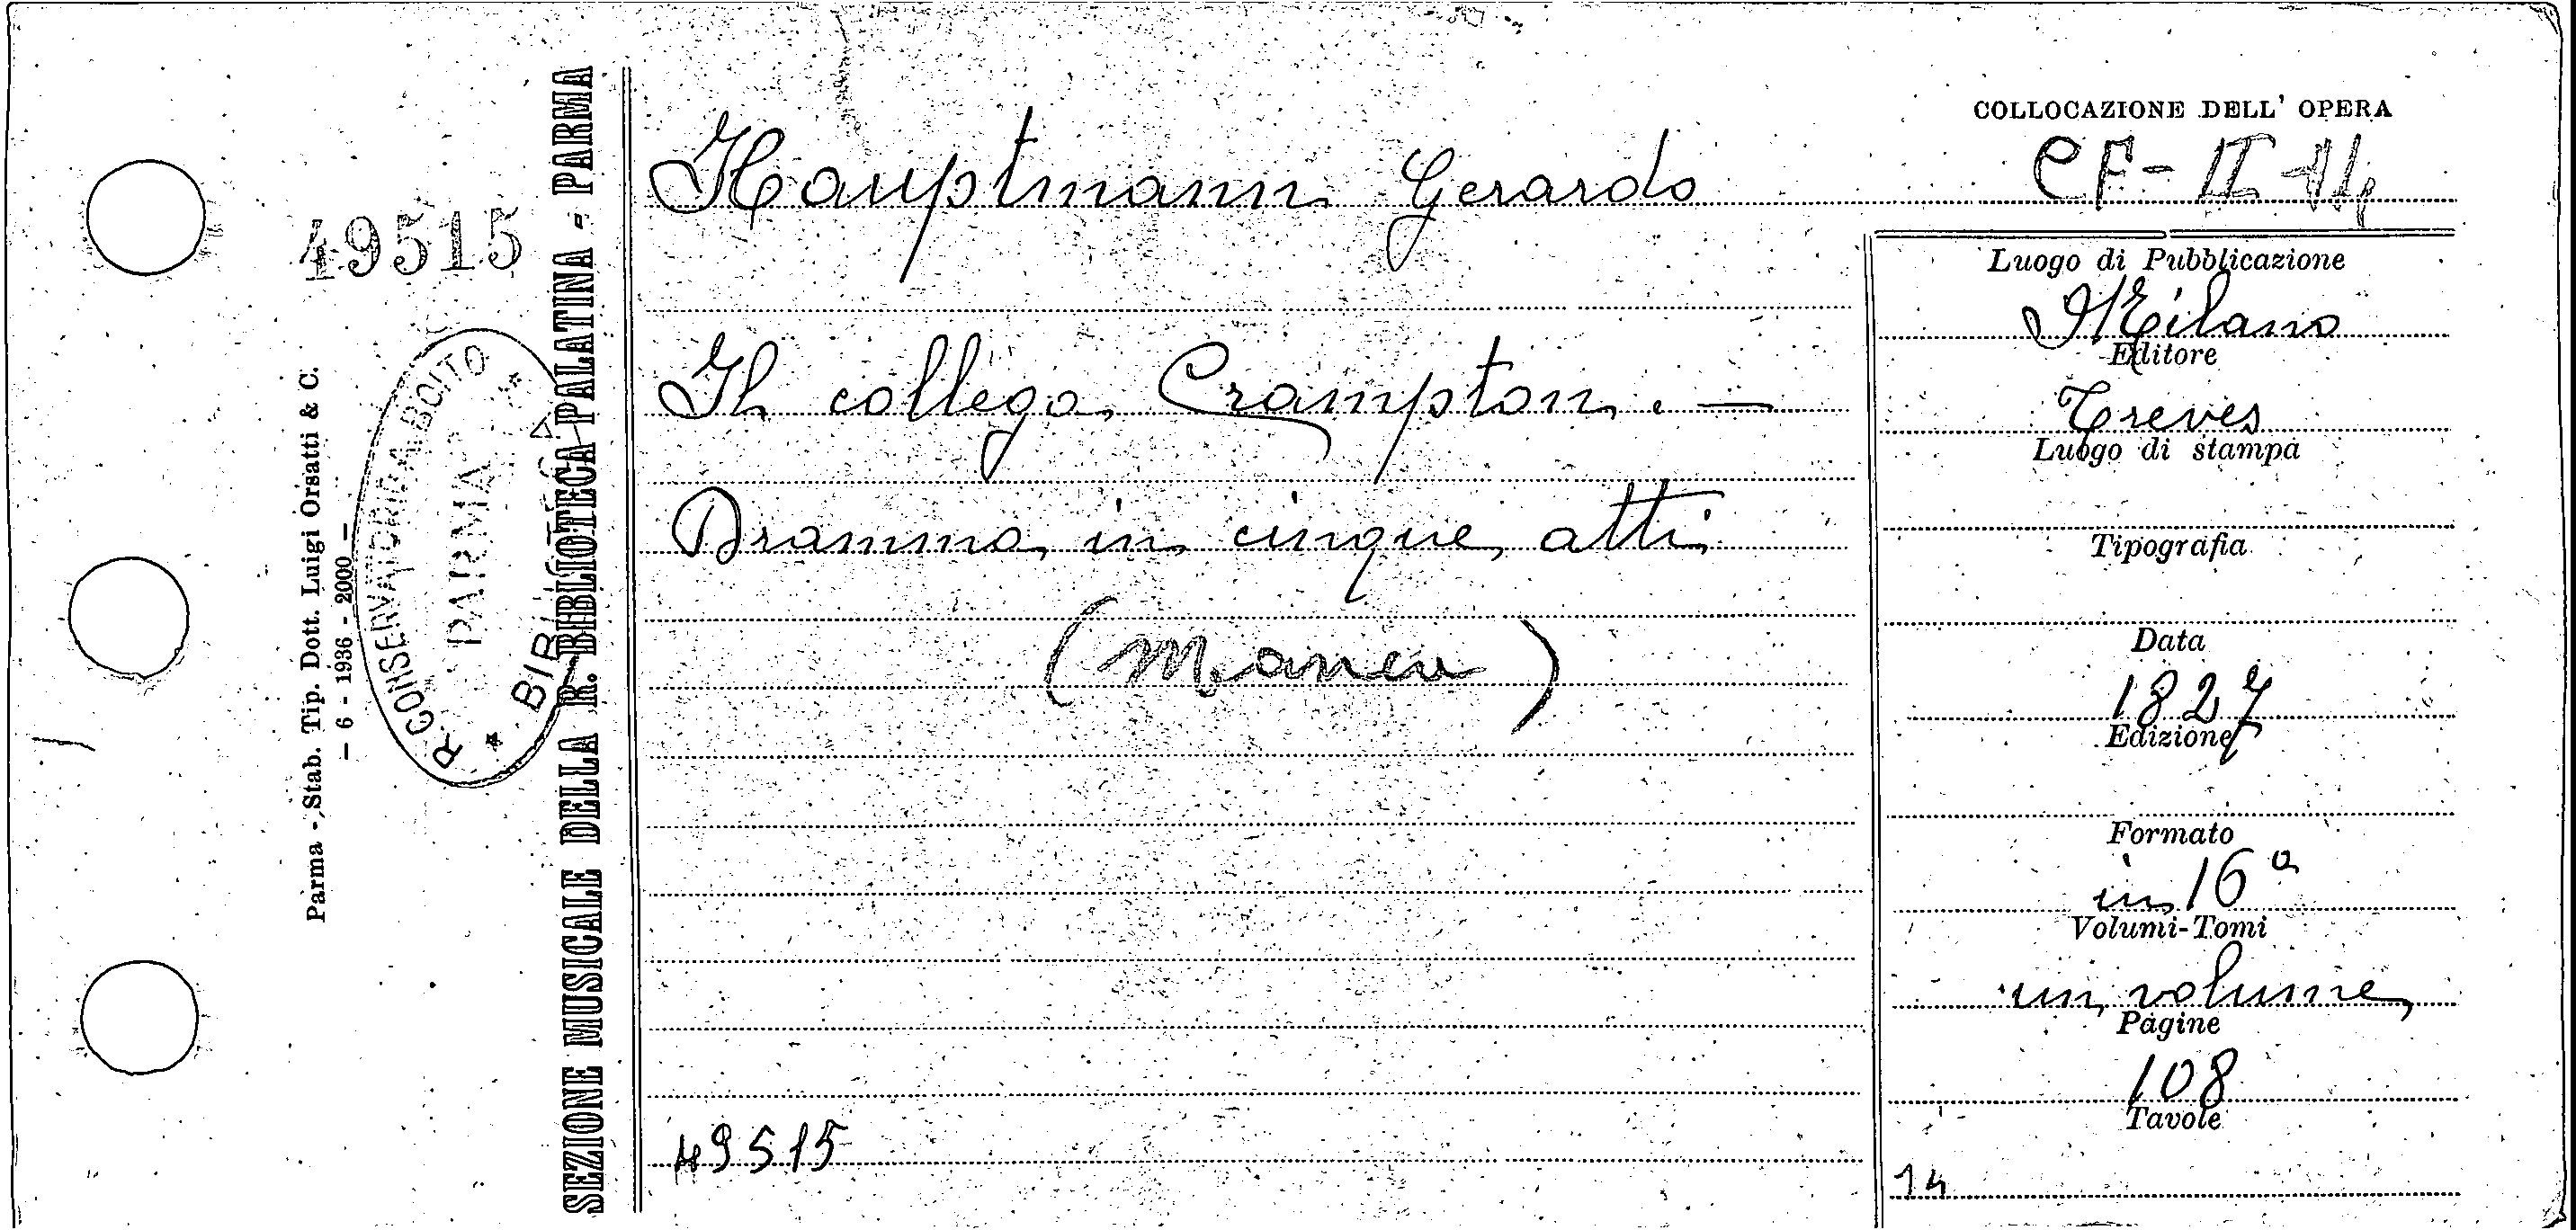 49515
Parma - Stab. Tip. Dott. Luigi Orsatti & C.
- 6 - 1936 - 2000 -
R. CONSERVATORIO A. BOITO
PARMA
SEZIONE MUSICALE DELLA R. BIBLIOTECA PALATINA - PARMA
Hauptmann Gerardo
Il collega Crampton. —
Dramma in cinque atti
(Manca)
49515
COLLOCAZIONE DELL' OPERA
CF-II
Luogo di Pubblicazione
Milano
Editore
Treves
Luogo di stampa
Tipografia
Data
1827
Edizione
Formato
in 16°
Volumi-Tomi
un volume
Pagine
108
Tavole
14